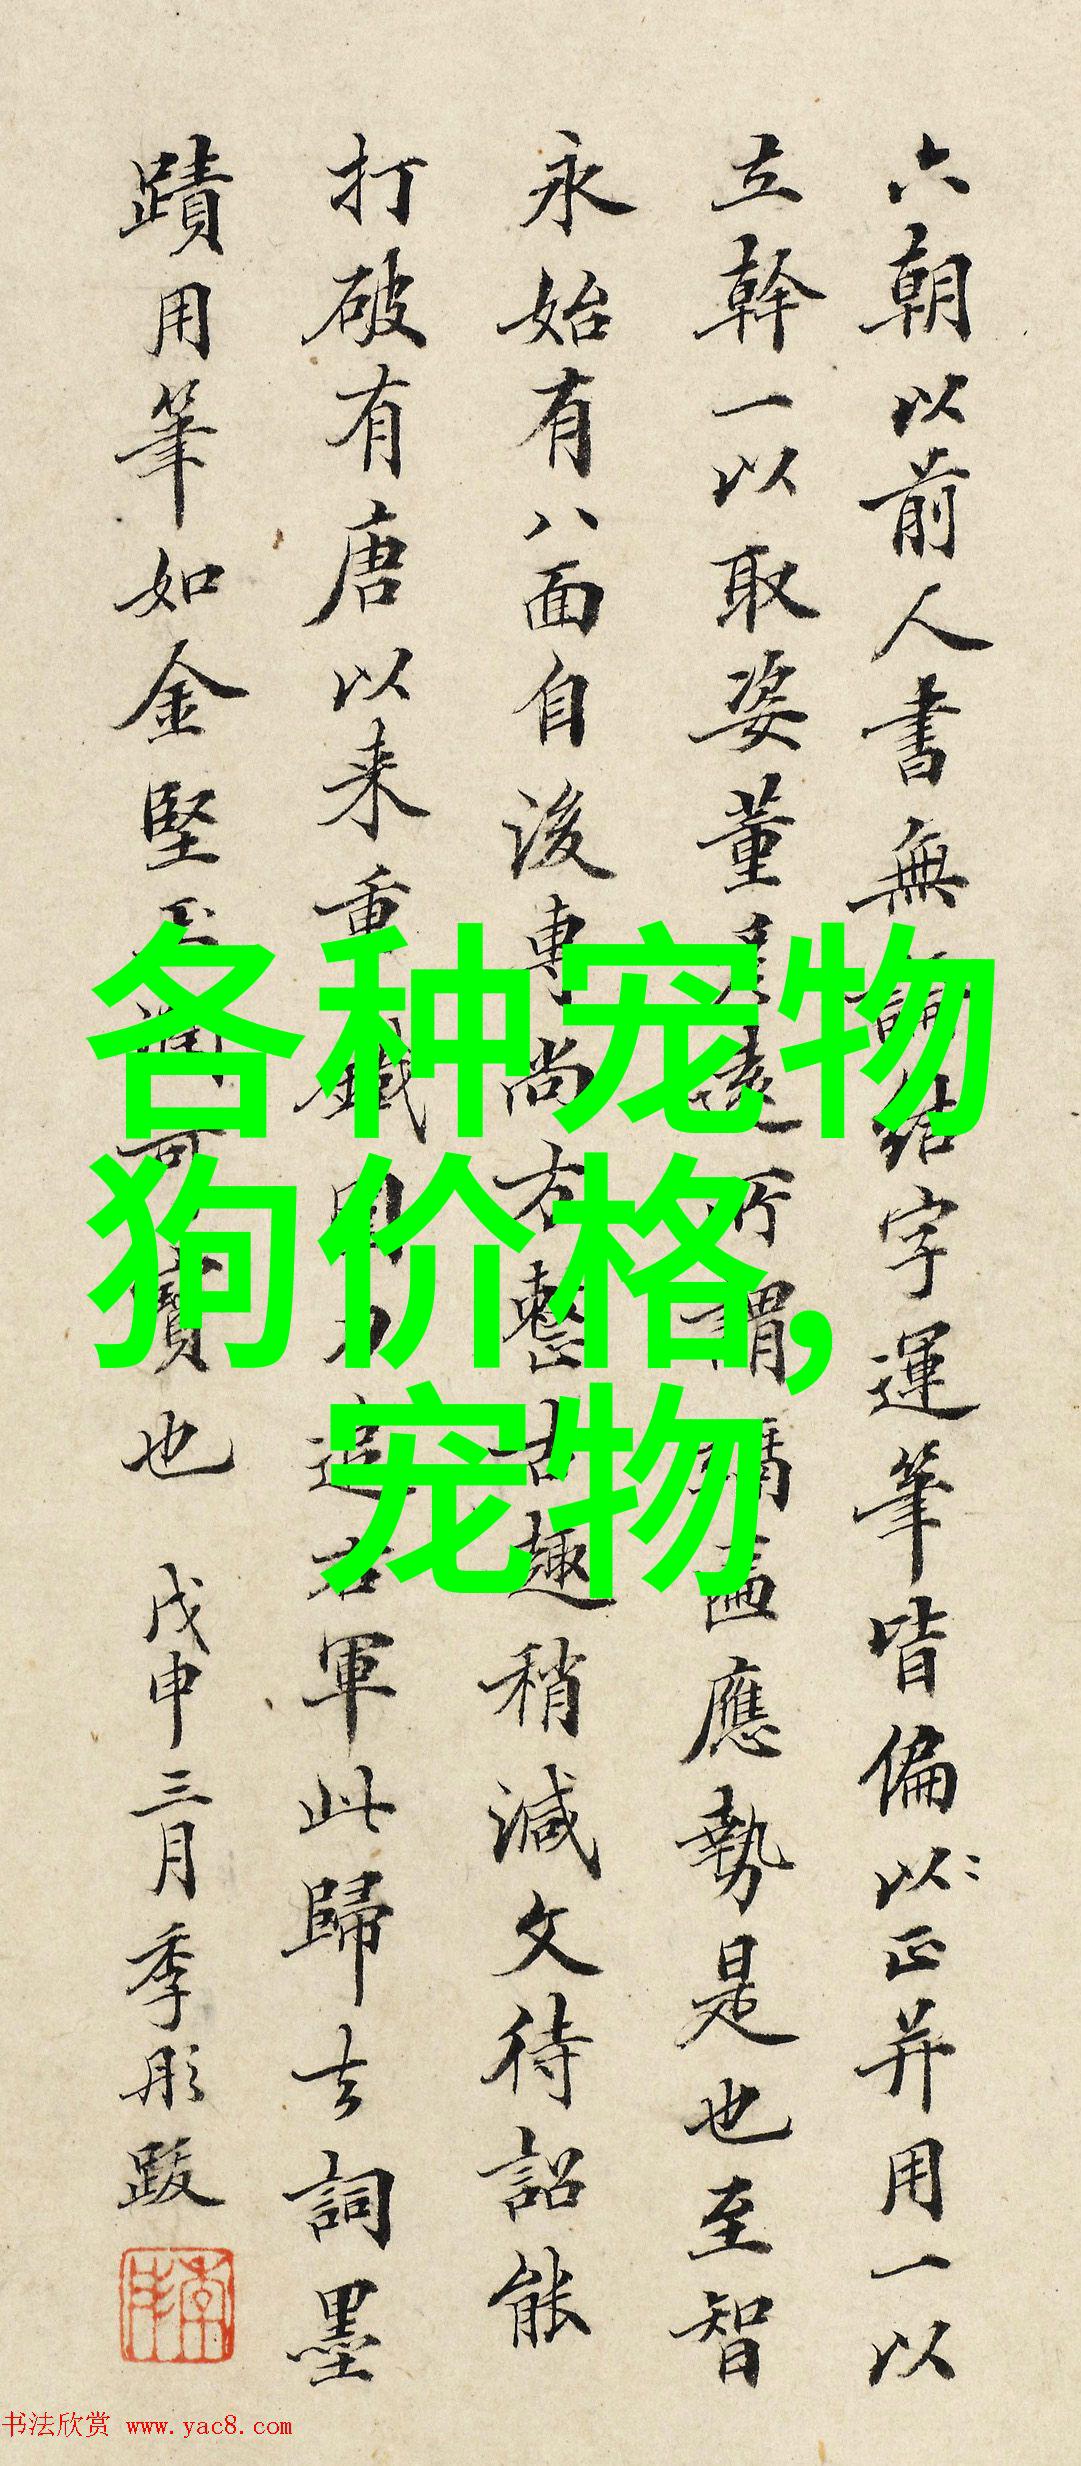 六朝以前人書無論結字運筆皆偏以正并用一以
立幹一以取姿董思遠所謂 應勢是也至智
永始有八面自後專尚右整古趣稍減文待詔能
打破有唐以来重 追右軍此歸去詞墨
蹟用筆如金堅玉潤可寶也 戊申三月季彤跋
各种宠物
狗价格,
宠物
书法欣赏 www.yac8.com